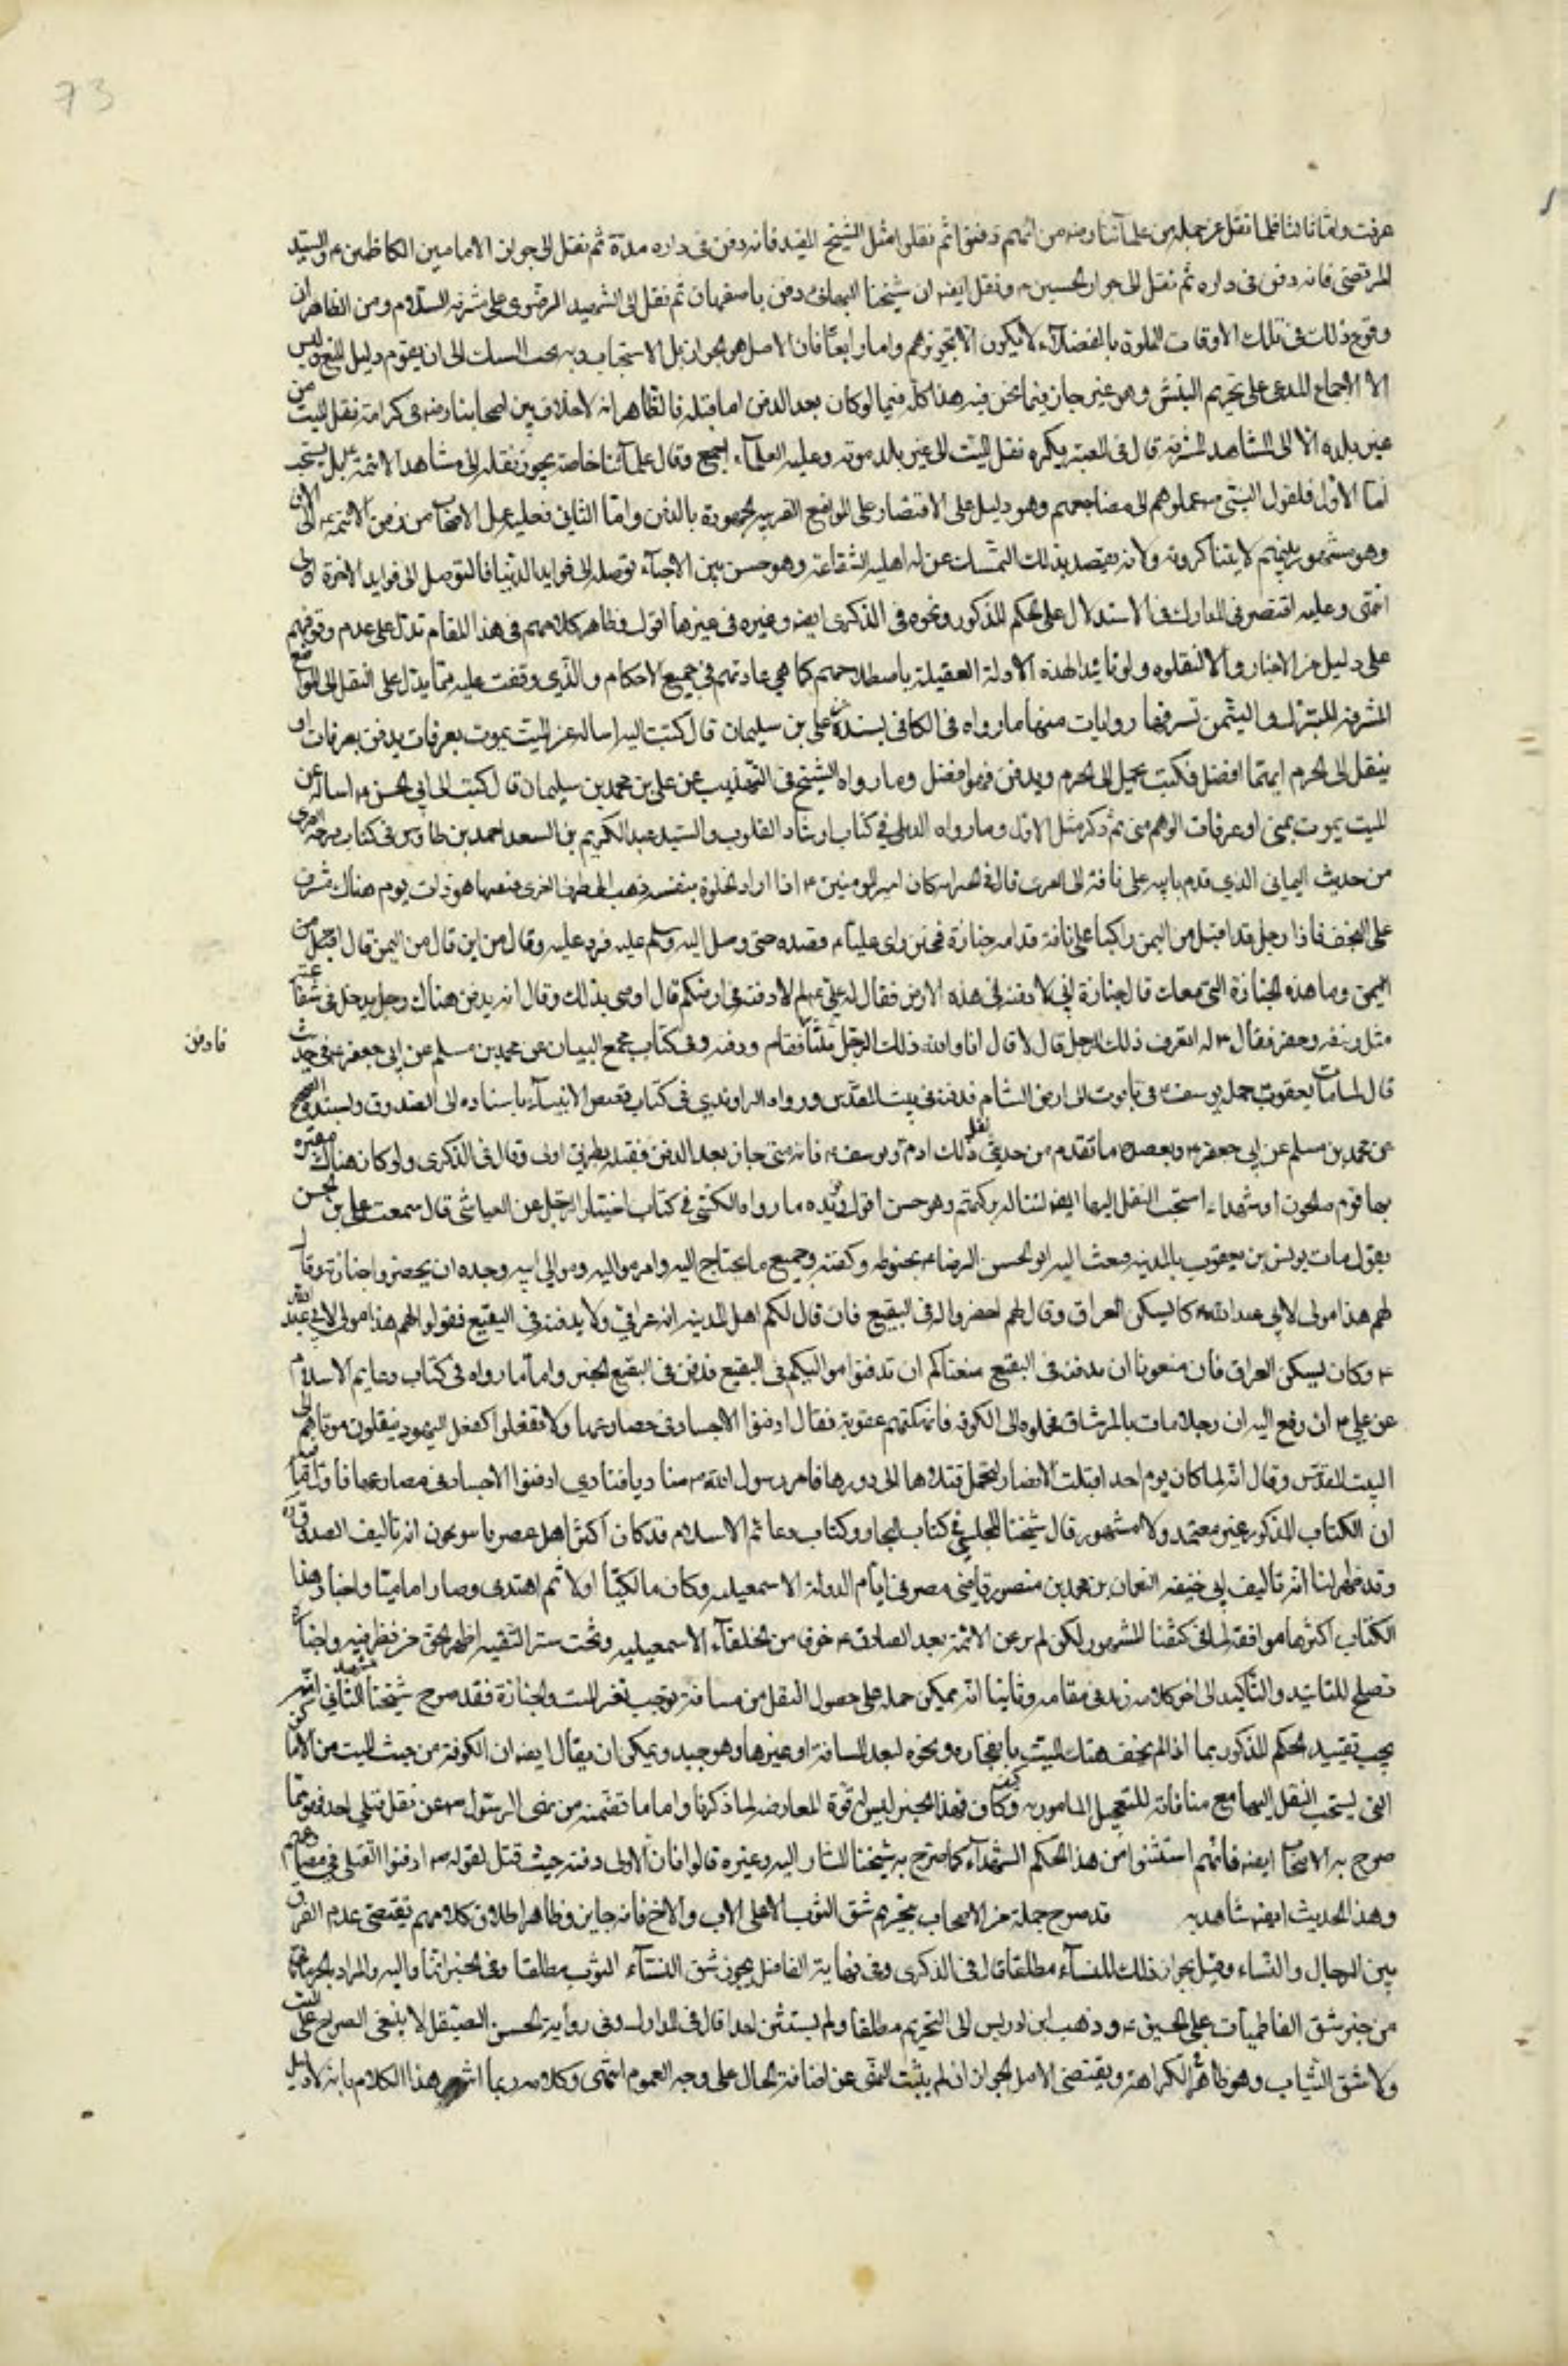 73
عرفت واما ثالثا فلما نقل عن جملة من علمآئنا رضه من انهم دفنوا ثم نقلوا مثل الشيخ المفيد فانه دفن فى داره مدة ثم نقل الى جوار الامامين الكاظمين ع والسيد
المرتضى فانه دفن فى داره ثم نقل الى جوار الحسين ع ونقل ايضه ان شيخنا البهائى دفن باصفهان ثم نقل الى المشهد الرضوى على مشرفه السلام ومن الظاهر ان
وقوع ذلك فى تلك الاوقات المملوة بالفضلآء لا يكون الا بتجويزهم واما رابعا فان الاصل هو الجواز بل الاستحباب وبه يجب التمسك الى ان يقوم دليل المنع وليس
الا الاجماع المدعى على تحريم النبش وهو غير جار فيما نحن فيه هذا كله فيما لو كان بعد الدفن اما قبله فالظاهر انه لا خلاف بين اصحابنا رضه فى كراهة نقل الميت من
غير بلده الا الى المشاهد المشرفه قال فى المعتبر يكره نقل الميت الى غير بلد موته وعليه العلمآء اجمع وقال علمآئنا خاصة يجوز نقله الى مشاهد الائمة ع بل يستحب
اما الاول فلقول النبى ص عجلوهم الى مضاجعهم وهو دليل على الاقتصار على المواضع القريبه المعهودة بالدفن واما الثانى فعليه عمل الاصحاب من زمن الائمه ع الى الان
وهو مشهور بينهم لا يتناكرونه ولانه يقصد بذلك التمسك عن له اهلية الشفاعة وهو حسن بين الاحيآء توصلا الى فوايد الدنيا فالتوصل الى فوايد الاخرة اولى
انتهى وعليه اقتصر فى المدارك فى الاستدلال على الحكم المذكور ونحوه فى الذكرى ايضه وغيره فى غيرها اقول وظاهر كلامهم فى هذا المقام تدل على عدم وقوفهم
على دليل من الاخبار والا لنقلوه ولو تائيدا لهذه الادلة العقلية باصطلاحهم كما هى عادتهم فى جميع الاحكام والذى وقفت عليه مما يدل على النقل الى المواضع
المشرفة للتبرك والتيمن بشرفها روايات منها ما رواه فى الكافى بسنده عن على بن سليمان قال كتبت اليه اساله عن الميت يموت بعرفات يدفن بعرفات او
ينقل الى الحرم ايهما افضل فكتب يحمل الى الحرم ويدفن فهو افضل وما رواه الشيخ فى التهذيب عن على بن محمد بن سليمان قال كتبت الى ابى الحسن ع اساله عن
الميت يموت بمنى او عرفات الوهم منى ثم ذكر مثل الاول وما رواه الديلمى فى كتاب ارشاد القلوب والسيد عبد الكريم بن السعد احمد بن طاوس فى كتاب فرحة الغرى
من حديث اليمانى الذى قدم بابيه على ناقة الى الغرى قال فى الخبر انه كان امير المومنين ع اذا اراد الخلوة بنفسه ذهب الى طرف الغرى فبينما هو ذات يوم هناك مشرف
على النجف فاذا رجل قد اقبل من اليمن راكبا على ناقة قدامه جنازة فحين راى عليا ع قصده حتى وصل اليه وسلم عليه فرد عليه وقال من اين قال من اليمن قال اقبلت من
اليمن وما هذه الجنازة التى معك قال جنازة ابى لادفنه فى هذه الارض فقال له على ع لم لا دفنته فى ارضكم قال اوصى بذلك وقال انه يدفن هناك رجل يدخل فى شفاعته
مثل ربيعه ومضر فقال ع له اتعرف ذلك الرجل قال لا قال انا والله ذلك الرجل ثلثا فقام ودفنه وفى كتاب مجمع البيان عن محمد بن مسلم عن ابى جعفر ع فى حديث
فادفن
قال لما مات يعقوب حمل يوسف ع فى تابوت الى ارض الشام فدفنه فى بيت المقدس ورواه الراوندى فى كتاب قصص الانبيآء باسناده الى الصدوق وبسنده الصحيح
عن محمد بن مسلم عن ابى جعفر ع ويعضده ما تقدم من حديثى نقل ذلك ادم ويوسف ع فانه متى جاز بعد الدفن فقبله بطريق اولى وقال فى الذكرى ولو كان هناك مقبره
بها قوم صالحون او شهداء استحب النقل اليها ايضه لتناله بركتهم وهو حسن اقول ويؤيده ما رواه الكشى فى كتاب اختيار الرجل عن العياشى قال سمعت على بن الحسن
يقول مات يونس بن يعقوب بالمدينه فبعث اليه ابو الحسن الرضا ع بحنوطه وكفنه وجميع ما يحتاج اليه وامر مواليه وموالى ابيه وجده ان يحضروا جنازته وقال
لهم هذا مولى لابى عبد الله ع كان يسكن العراق وقال لهم احفروا له فى البقيع فان قال لكم اهل المدينه انه عراقى ولا يدفنه فى البقيع فقولوا لهم هذا مولى لابى عبد الله
ع وكان يسكن العراق فان منعونا ان ندفنه فى البقيع منعناكم ان تدفنوا مواليكم فى البقيع فدفن فى البقيع الخبر واما ما رواه فى كتاب دعايم الاسلام
عن على ع انه رفع اليه ان رجلا مات بالرستاق فحملوه الى الكوفه فانهكهم عقوبة فقال ادفنوا الاجساد فى مصارعها ولا تفعلوا كفعل اليهود ينقلون موتاهم الى
البيت المقدس وقال انه لما كان يوم احد اقبلت الانصار لتحمل قتلاها الى دورها فامر رسول الله ص مناديا فنادى ادفنوا الاجساد فى مصارعها
ان الكتاب المذكور غير معتمد ولا مشهور قال شيخنا المجلسى فى كتاب البحار وكتاب دعائم الاسلام قد كان اكثر اهل عصرنا يتوهمون انه تاليف الصدوق ره
وقد ظهر لنا انه تاليف ابى حنيفه النعمان بن محمد بن منصور قاضى مصر فى ايام الدولة الاسمعيليه وكان مالكيا اولا ثم اهتدى وصار اماميا واخبار هذا
الكتاب اكثرها موافقة لما فى كتبنا المشهوره لكن لم يرو عن الائمة بعد الصادق ع خوف من الخلفآء الاسمعيليه وتحت ستر التقيه اظهر الحق من نظر فيه واخباره
تصلح للتاييد والتاكيد الى اخر كلامه زيد فى مقامه وثانيا انه يمكن حمله على حصول النقل من مسافة توجب تغير الميت والجنازة فقد صرح شيخنا الشهيد الثانى انه
يجب تقييد الحكم المذكور بما اذا لم يخف هتك الميت بانفجاره ونحوه لبعد المسافة او غيرها وهو جيد ويمكن ان يقال ايضه ان الكوفة من حيث الميت من الاماكن
التى يستحب النقل اليها مع منافاته للتعجيل المامور به وكيف كان فهذا الخبر ليس له قوة المعارضه لما ذكرنا واما ما تضمنه من نهى الرسول ص عن نقل قتلى احد فهو مما
صرح به الاصحاب ايضه فانهم استثنوا من هذا الحكم الشهدآء كما صرح به شيخنا المشار اليه وغيره قالوا فان الاولى دفنه حيث قتل لقوله ص ادفنوا القتلى فى مصارعهم
وهذا الحديث ايضه شاهد به قد صرح جملة من الاصحاب بتحريم شق الثوب الا على الاب والاخ فانه جايز وظاهر اطلاق كلامهم يقتضى عدم الفرق
بين الرجال والنساء وقيل بجواز ذلك للنسآء مطلقا قال فى الذكرى وفى نهاية الفاضل يجوز شق النسآء الثوب مطلقا وفى الخبر ايماء اليه والمراد بالخبر
من خبر شق الفاطميات على الحسين ع وذهب ابن ادريس الى التحريم مطلقا ولم يستثن احدا قال فى المدارك وفى رواية الحسن الصيقل لا ينبغى الصراخ على الميت
ولا شق الثياب وهو ظاهر الكراهة ويقتضى الاصل الجواز ان لم يثبت النهى عن اضاعة المال على وجه العموم انتهى وكلامه ربما اشعر هذا الكلام بانه لا دليل